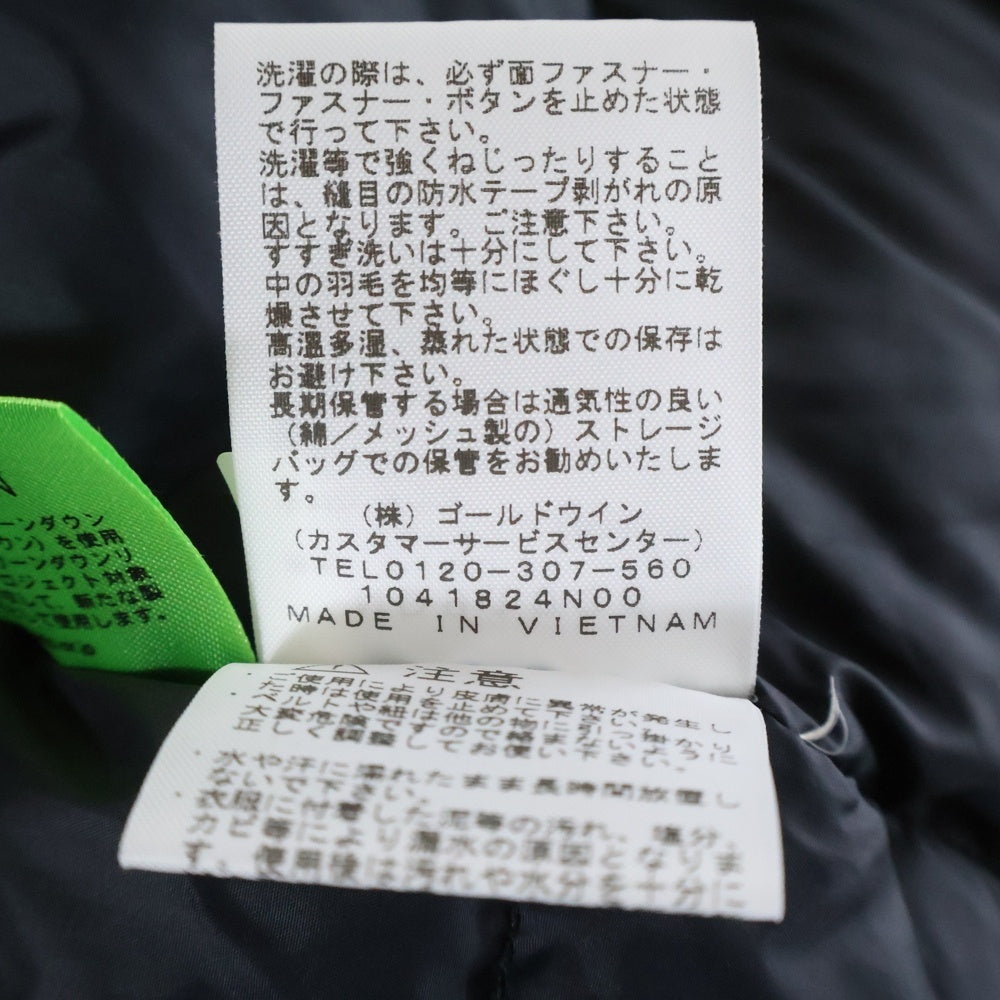 洗濯の際は、必ず面ファスナー・
ファスナー・ボタンを止めた状態
で行って下さい。
洗濯等で強くねじったりすること
は、縫目の防水テープ剥がれの原
因となります。ご注意下さい。
すすぎ洗いは十分にして下さい。
中の羽毛を均等にほぐし十分に乾
燥させて下さい。
高温多湿、蒸れた状態での保存は
お避け下さい。
長期保管する場合は通気性の良い
（綿／メッシュ製の）ストレージ
バッグでの保管をお勧めいたしま
す。
（株）ゴールドウイン
（カスタマーサービスセンター）
TEL0120-307-560
1041824N00
MADE IN VIETNAM
ーンダウン
ウン）を使用
ーンダウンリ
ロジェクト対象
して、新たな製
して使用します。
注意
水や汗に濡れたまま長時間放置し
ないで下さい。
衣服に付着した泥等の汚れ、塩分、
カビ等により漏水の原因となりま
す。使用後は汚れや水分を十分に